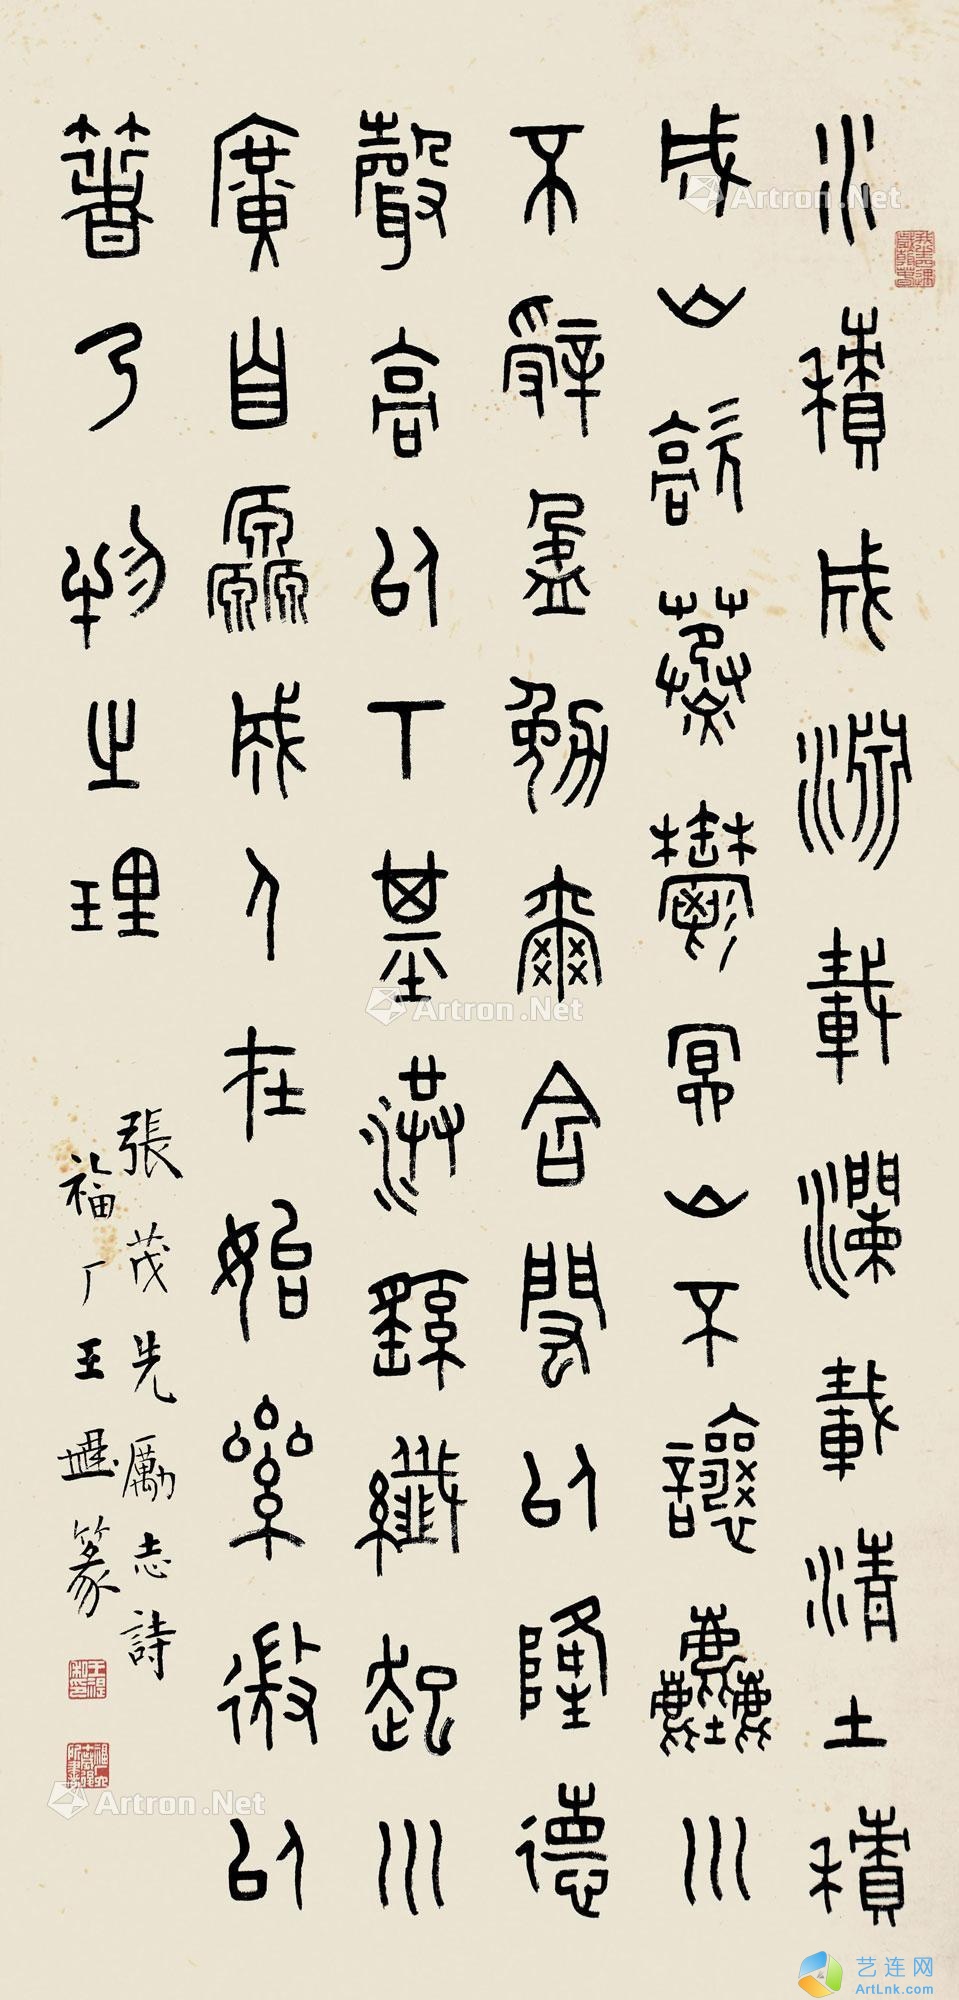 水積成淵載瀾載清土積
成山歊蒸鬱冥山不讓塵川
不辭盈勉爾含閎以隆德
聲高以下基洪繇纖起川
廣自厵成人在始絫微以
著乃物之理
張茂先勵志詩
福厂王禔篆
Artron.Net
Artron.Net
Artron.Net
艺连网
ArtLnk.com